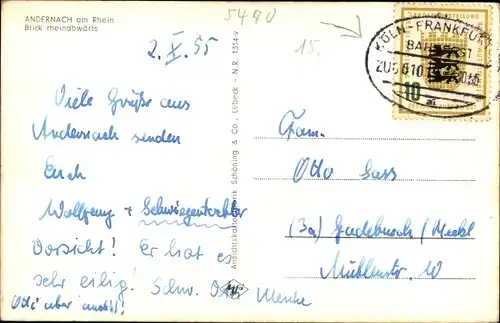 ANDERNACH am Rhein
Blick rheinabwärts
5480
15.
2.X.55
Viele Grüße aus
Andernach senden
Euch
Wolfgang + Schwiegentochter
Vorsicht! Er hat es
sehr eilig! Schw.
Otti aber
Menke
Ansichtskartenfabrik Schöning & Co., Lübeck - N.R. 1514-v
KÖLN-FRANKFURT
BAHNPOST
ZUG 610
10
Fam.
Otto Sass
(3a) Gadebusch/Meckl
Mühlenstr. 10